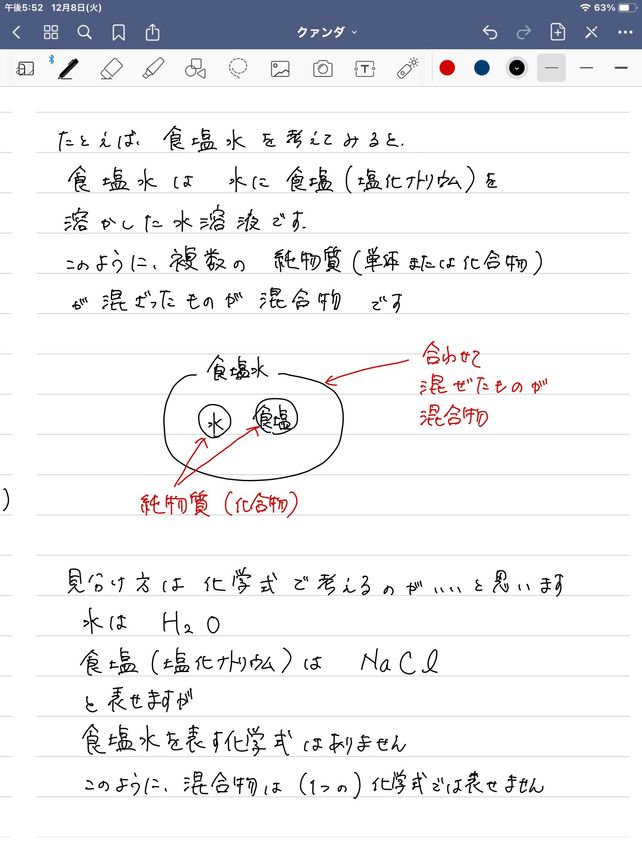 午後5:52 12月8日(火) 63%
クァンダ
T
たとえば、食塩水を考えてみると、
食塩水は 水に食塩(塩化ナトリウム)を
溶かした水溶液です。
このように、複数の純物質(単体または化合物)
が混ざったものが混合物です
食塩水
合わせて
混ぜたものが
混合物
水 食塩
)
純物質(化合物)
見分け方は化学式で考えるのがいいと思います
水は H₂O
食塩(塩化ナトリウム)は NaCl
と表せますが
食塩水を表す化学式はありません
このように、混合物は(1つの)化学式では表せません